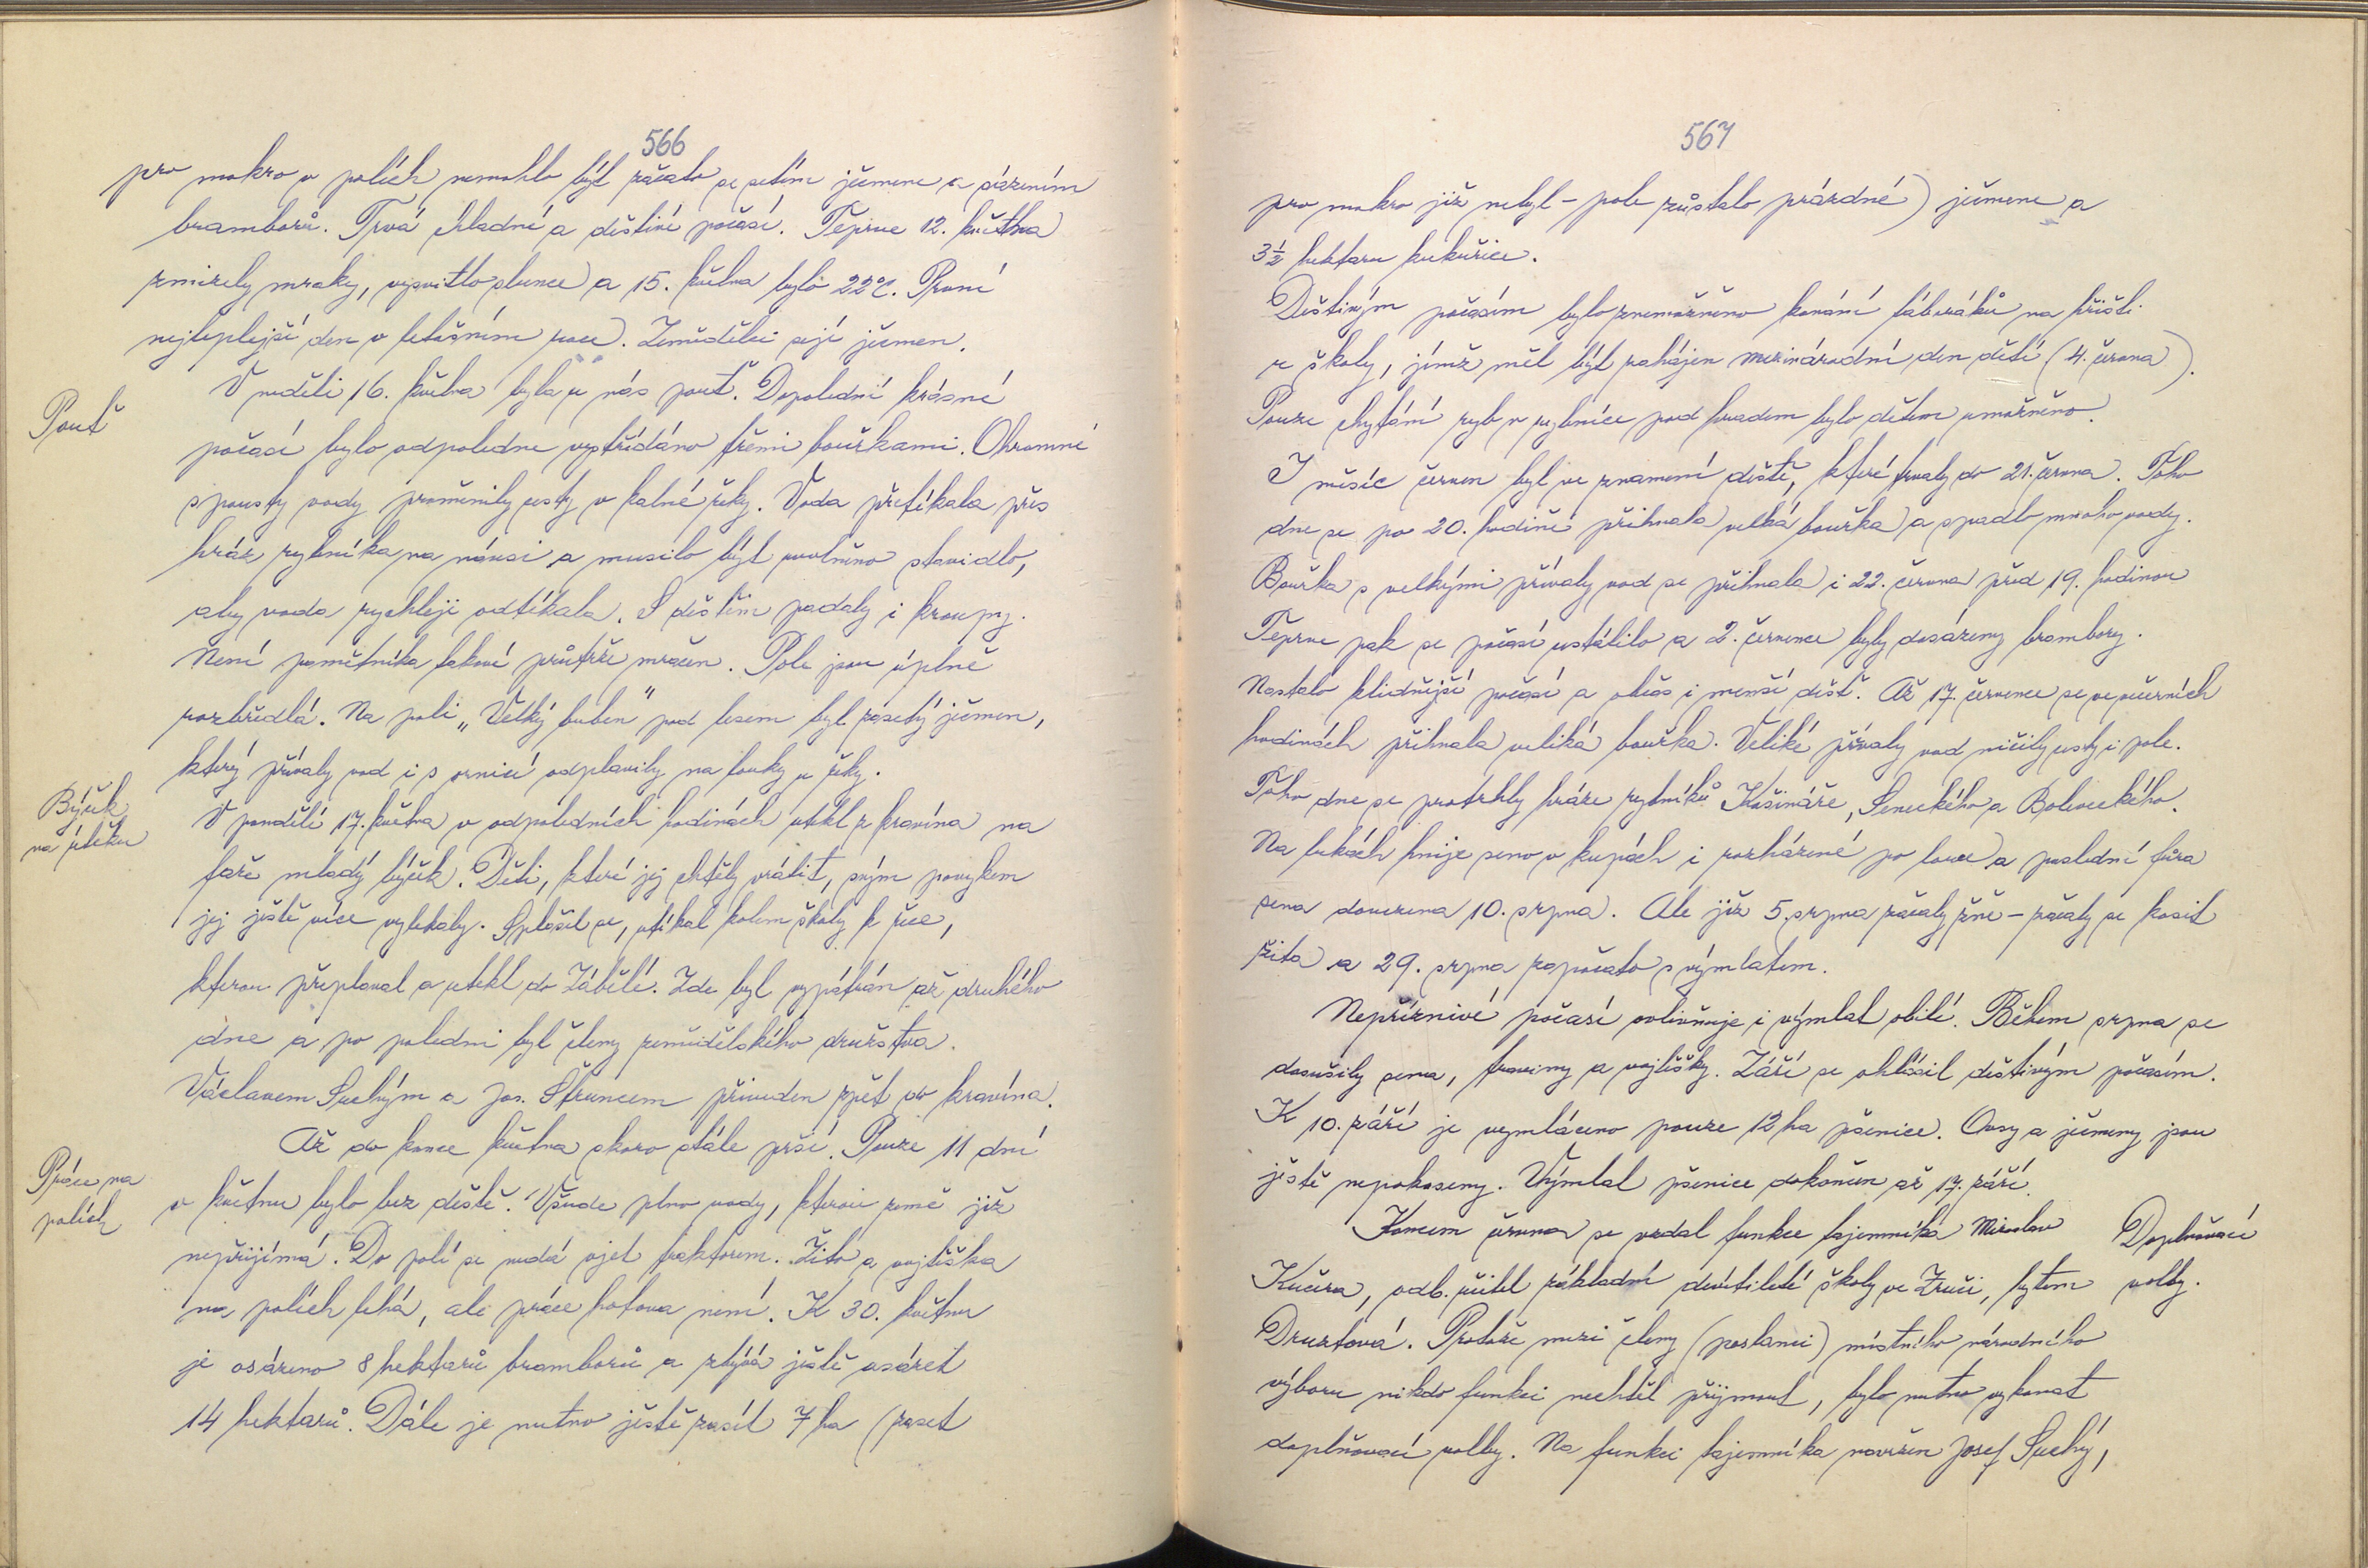 566
pro mokro v polích nemohlo být začato se setím ječmene a sázením
bramborů. Trvá chladné a deštivé počasí. Teprve 12. května
zmizely mraky, vysvitlo slunce a 15. května bylo 22°C. První
nejteplejší den v letošním roce. Zemědělci sejí ječmen.
Pouť
V neděli 16. května byla u nás pouť. Dopolední krásné
počasí bylo odpoledne vystřídáno třemi bouřkami. Ohromné
spousty vody proměnily cesty v kalné řeky. Voda přetékala přes
hráz rybníka na návsi a musilo být uvolněno stavidlo,
aby voda rychleji odtékala. S deštěm padaly i kroupy.
Není pamětníka takové průtrže mračen. Pole jsou úplně
rozbředlá. Na poli „Velký buben" pod lesem byl zasetý ječmen,
který přívaly vod i s ornicí odplavily na louky u řeky.
Býček
na útěku
V pondělí 17. května v odpoledních hodinách utekl z kravína na
faře mladý býček. Děti, které jej chtěly vrátit, svým povykem
jej ještě více vylekaly. Splašil se, utíkal kolem školy k řece,
kterou přeplaval a utekl do Zábělé. Zde byl vypátrán až druhého
dne a po poledni byl členy zemědělského družstva
Václavem Suchým a Jos. Štruncem přiveden zpět do kravína.
Až do konce května skoro stále prší. Pouze 11 dní
Práce na
polích
v květnu bylo bez deště. Všude plno vody, kterou země již
nepřijímá. Do polí se nedá vjet traktorem. Žito a vojtěška
na polích lehá, ale práce hotova není. K 30. květnu
je osázeno 8 hektarů bramborů a zbývá ještě osázet
14 hektarů. Dále je nutno ještě zasít 7 ha (zaset
567
pro mokro již nebyl - pole zůstalo prázdné) ječmene a
3½ hektaru kukuřice.
Deštivým počasím bylo znemožněno konání táboráků na hřišti
u školy, jímž měl být zahájen mezinárodní den dětí (4. června).
Pouze chytání ryb v rybníce pod hradem bylo dětem umožněno.
I měsíc červen byl ve znamení deště, které trvaly do 21. června. Toho
dne se po 20. hodině přihnala velká bouřka a spadlo mnoho vody.
Bouřka s velkými přívaly vod se přihnala i 22. června před 19. hodinou
Teprve pak se počasí ustálilo a 2. července byly dosázeny brambory.
Nastalo klidnější počasí a občas i menší déšť. Až 17. července se ve večerních
hodinách přihnala veliká bouřka. Veliké přívaly vod ničily cesty i pole.
Toho dne se protrhly hráze rybníků Košináře, Seneckého a Boleveckého.
Na lukách hnije seno v kupách i rozházené po louce a poslední fůra
sena dovezena 10. srpna. Ale již 5. srpna začaly žně - začaly se kosit
žita a 29. srpna započato s výmlatem.
Nepříznivé počasí ovlivňuje i výmlat obilí. Během srpna se
dosušily sena, traviny a vojtěšky. Září se ohlásil deštivým počasím.
K 10. září je vymláceno pouze 12 ha pšenice. Ovsy a ječmeny jsou
ještě nepokoseny. Výmlat pšenice dokončen až 17. září.
Koncem června se vzdal funkce tajemníka Miroslav
Doplňovací
volby.
Kučera, odb. učitel základní devítileté školy ve Zruči, bytem
Druztová. Protože mezi členy (poslanci) místního národního
výboru nikdo funkci nechtěl přijmout, bylo nutno vykonat
doplňovací volby. Na funkci tajemníka navržen Josef Suchý,